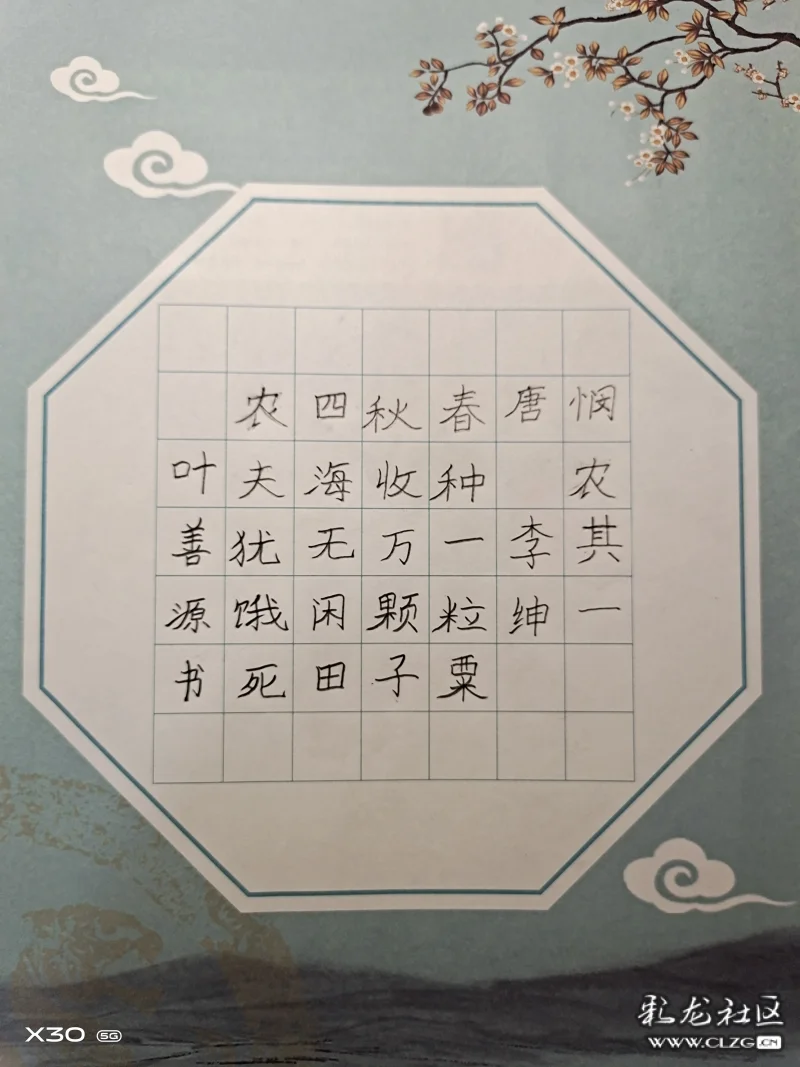 悯农其一
唐 李绅
春种一粒粟
秋收万颗子
四海无闲田
农夫犹饿死
叶善源书
X30 5G
彩龙社区
WWW.CLZG.CN